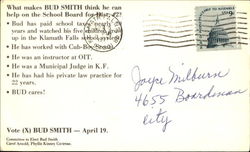 What makes BUD SMITH think he can
help on the School Board for Dist.
Bud has paid school taxes
years and watched his five children grow
up in the Klamath Falls school system.
• He has worked with Cub-Boy Scouts
• He was an instructor at OIT.
• He was a Municipal Judge in K.F.
• He has had his private law practice for
22 years.
• BUD cares!
Vote (X) BUD SMITH — April 19.
Committee to Elect Bud Smith
Carol Arnold, Phyllis Kinney
Joyce Milburn
4655 Boardman
City